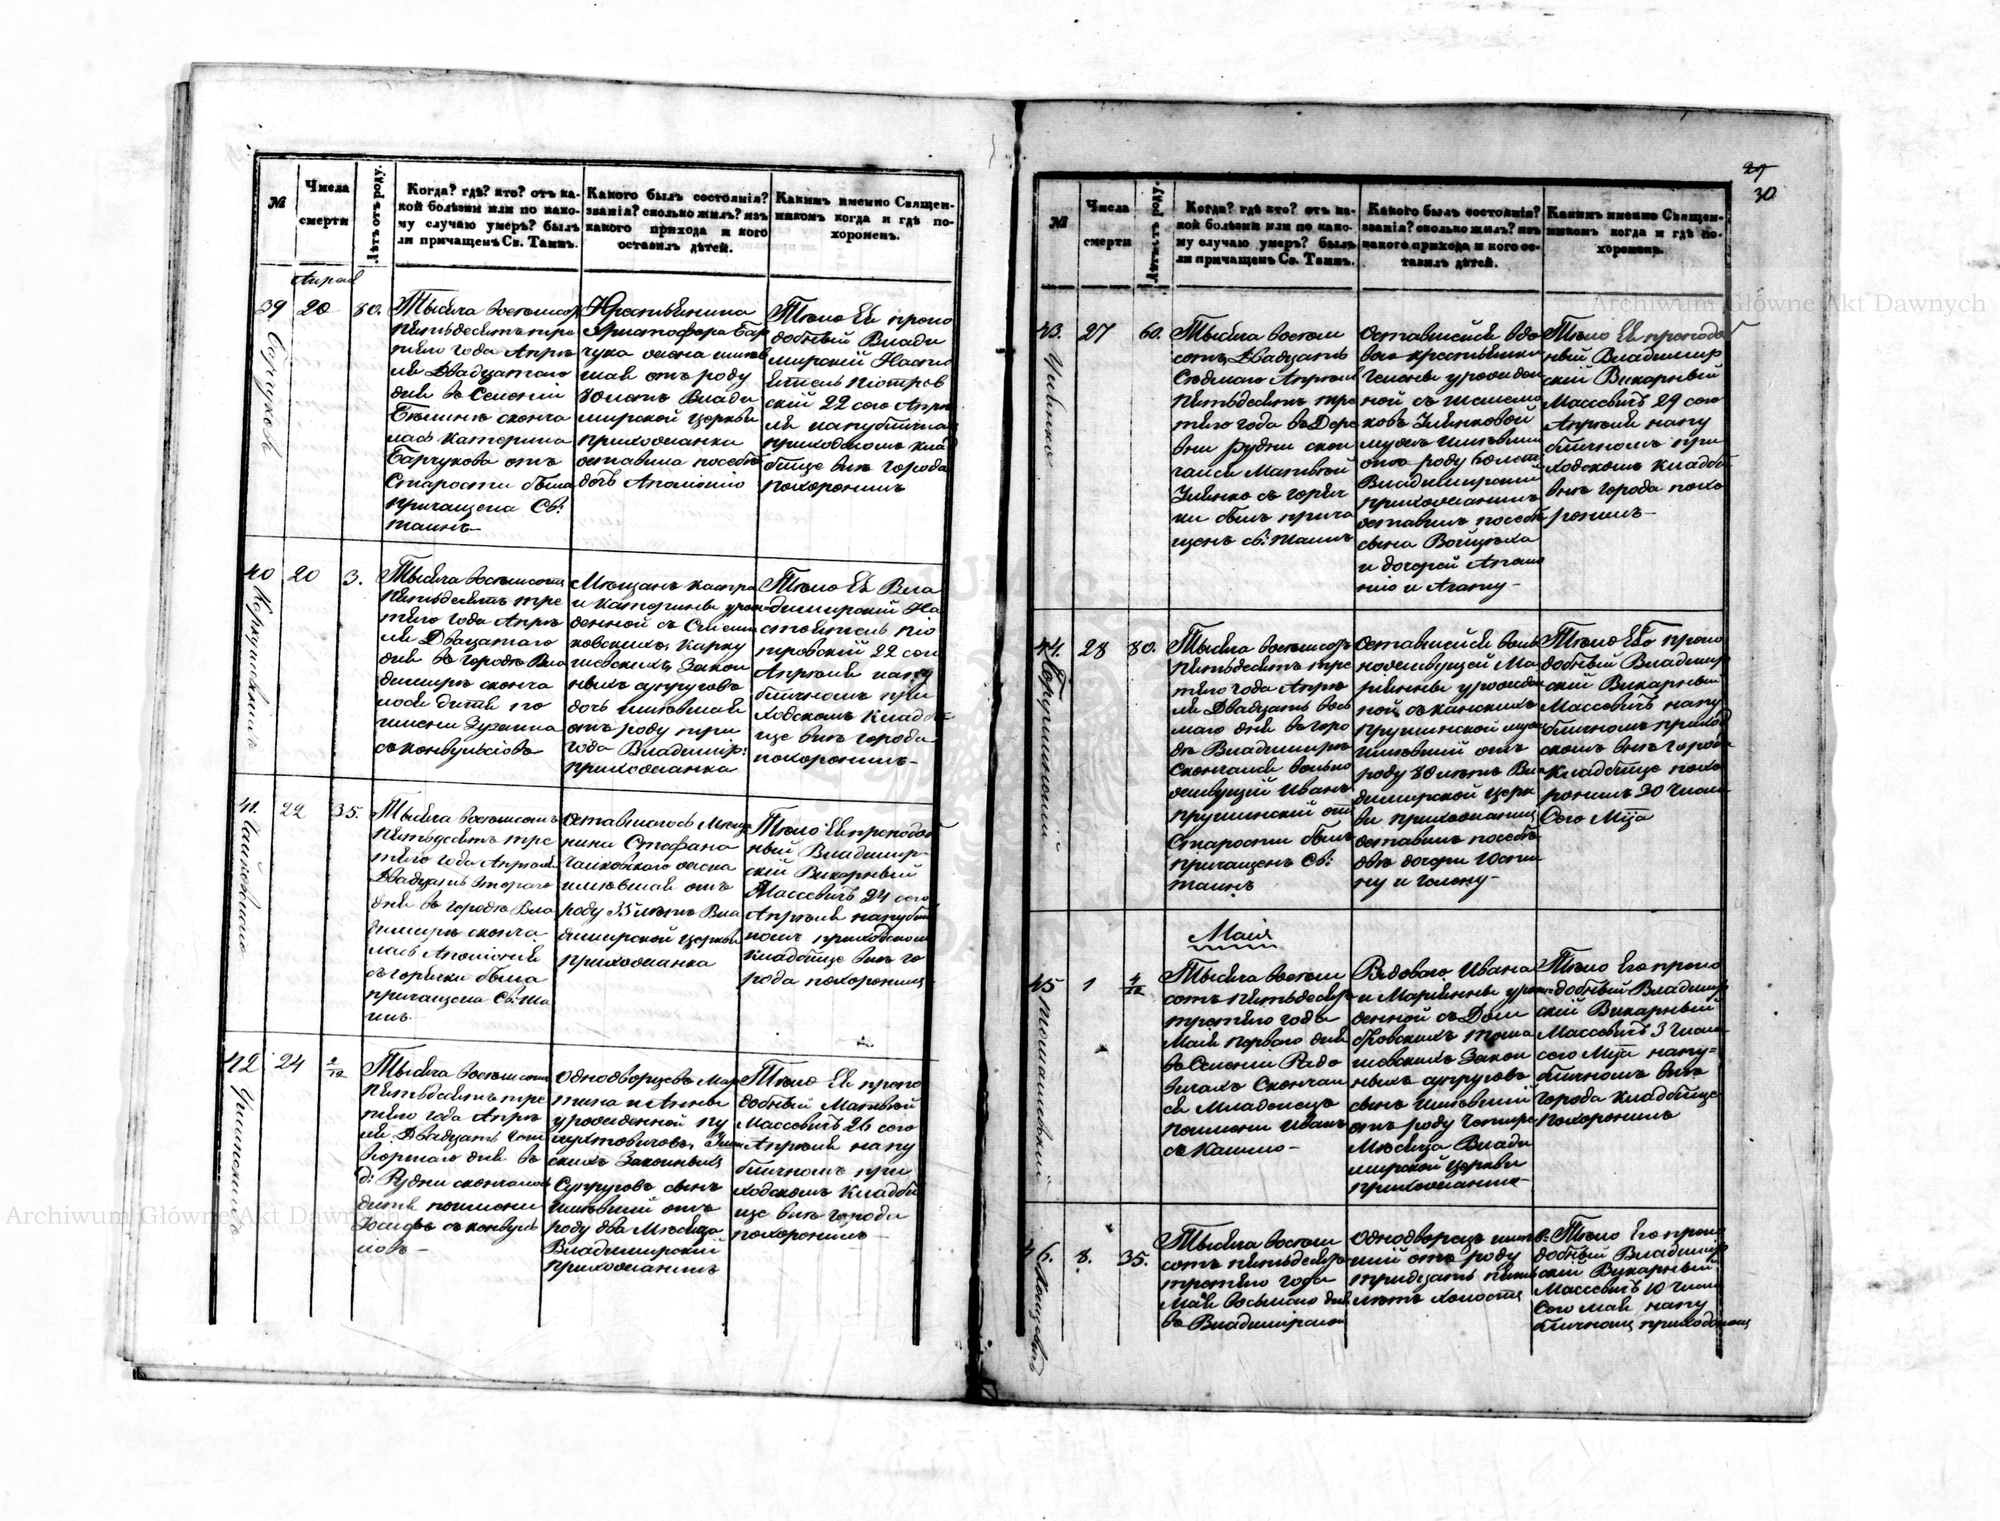 №
Числа
смерти
Лѣтъ отъ роду.
Когда? гдѣ? кто? отъ ка-
кой болѣзни или по како-
му случаю умеръ? былъ
ли причащенъ Св. Таинъ.
Какого былъ состоянія?
званія? сколько жилъ? изъ
какого прихода и кого
оставилъ дѣтей.
Какимъ именно Священ-
никомъ когда и гдѣ по-
хороненъ.
39
20
80.
Тысяча восемьсот
пятьдесятъ тре
тяго года Апрѣ
ля Двадцатаго
дня въ Селеніи
сконча
лась Катерина
Барчукова отъ
Старости была
причащена Св:
таинъ
Крестьянина
Христофора Бар
чука жена имѣв
шая отъ роду
80 летъ Влади
мирской Церкви
прихожанка
оставила после себя
дочь Аполонію
Тѣло Ея препо
добный Влади
мирскій Насто
ятель Піотров
скій 22 сего Апрѣ
ля на публичном
приходскомъ клад
бище внѣ города
похоронилъ
40
20
3.
Тысяча восемьсотъ
пятьдесятъ тре
тяго года Апрѣ
ля Двацатаго
дня въ городѣ Вла
димирѣ сконча
лося дитя по
имени Зузанна
съ конвульсіовъ
Мещанъ
и Катерины урож
денной съ
Закон
ныхъ супруговъ
дочь имѣвшая
отъ роду три
года Владимір:
прихожанка
Тѣло Ея Вла
димирскій На
стоятель Піо
тровскій 22 сего
Апрѣля на пу
бличномъ при
ходскомъ кладби
ще внѣ города
похоронилъ
41.
22
35.
Тысяча восемьсотъ
пятьдесятъ тре
тяго года Апрѣля
Двадцать втораго
дня въ городѣ Вла
димирѣ сконча
лась Апполонія
съ горячки была
причащена Св: Та
инъ
Оставшагося Меща
нина Стефана
Чайковскаго жена
имѣвшая отъ
роду 35 летъ Вла
димирской Церкви
прихожанка
Тѣло Ея преподоб
ный Владимир
скій Викарный
Массевичъ 24 сего
Апрѣля на публич
номъ приходском
кладбище внѣ го
рода похоронилъ
42
24
2/12
Тысяча восемьсотъ
пятьдесятъ тре
тяго года Апрѣ
ля Двадцать чет
вертаго дня въ
д: Рудни скончалось
дитя по имени
Іосифъ съ конвуль
Однодворцевъ Мар
тина и Анны
урожденной
Законныхъ
Супруговъ сынъ
имѣвшій отъ
роду два Мѣсяца
Владимирскій
прихожанинъ
Тѣло Ея препо
добный Матвѣй
Массевичъ 26 сего
Апрѣля на пу
бличномъ при
ходскомъ кладби
ще внѣ города
похоронилъ
29
30
№
Числа
смерти
Лѣтъ отъ роду.
Когда? гдѣ кто? отъ ка-
кой болѣзни или по како-
му случаю умеръ? былъ
ли причащенъ Св. Таинъ.
Какого былъ состоянія?
званія? сколько жилъ? изъ
какого прихода и кого ос-
тавилъ дѣтей.
Какимъ именно Священ-
никомъ когда и гдѣ по-
хороненъ.
43.
27
60.
Тысяча восем
сотъ Двадцать
Седьмаго Апрѣля
пятьдесятъ тре
тяго года въ Дере
вни Рудни скон
чался Матвѣй
съ горяч
ки былъ прича
щенъ св: таинъ
Оставшейся вдо
вою крестьянки
Гелены урожден
ной съ
мужъ имѣвшій
отъ роду 60 летъ
Владимирскій
прихожанинъ
оставилъ после себя
сына Войцеха
и дочерей Аполо
нію и Агату
Тѣло Ея преподоб
ный Владимир
скій Викарный
Массевичъ 29 сего
Апрѣля на пу
бличномъ при
ходскомъ кладби
внѣ города похо
ронилъ
44.
28
80.
Тысяча восемьсот
пятьдесятъ тре
тяго года Апрѣ
ля Двадцать вось
маго дня въ горо
дѣ Владимирѣ
Скончался вольно
живущій Иванъ
Прушинскій отъ
Старости былъ
причащенъ Св:
таинъ
Оставшейся воль
ноживущей Ма
ріянны урожден
ной съ
Прушинской мужъ
имѣвшій отъ
роду 80 летъ Вла
димирской Церк
ви прихожанинъ
оставилъ после себя
двѣ дочери Юсти
ну и Гелену
Тѣло Его препо
добный Владимир
скій Викарный
Массевичъ на пу
бличномъ приход
скомъ внѣ города
кладбище похо
ронилъ 30 числа
Сего М-ца
Маія
45
1
4/12
Тысяча восем
сотъ пятьдесят
третяго года
Маія перваго дня
въ Селеніи
Скончал
ся Младенецъ
по имени Иванъ
съ Кашлю
Рядоваго Ивана
и Маріянны урож
денной съ Дом
бровскихъ
Закон
ныхъ супруговъ
сынъ имѣвшій
отъ роду четыре
Мѣсяца Влади
мирской Церкви
прихожанинъ
Тѣло Его препо
добный Владимир
скій Викарный
Массевичъ 3 числа
сего М-ца на пу-
бличномъ внѣ
города кладбище
похоронилъ
46.
8.
35.
Тысяча восем
сотъ пятьдесят
третяго года
Мая восьмаго дня
въ Владимирѣ
Однодворецъ имѣв
шій отъ роду
тридцать пять
летъ холостъ
Тѣло Его препо
добный Владимир
скій Викарный
Массевичъ 10 числа
Сего мая на пу
бличномъ приходскомъ
Archiwum Główne Akt Dawnych
Archiwum Główne Akt Dawnych